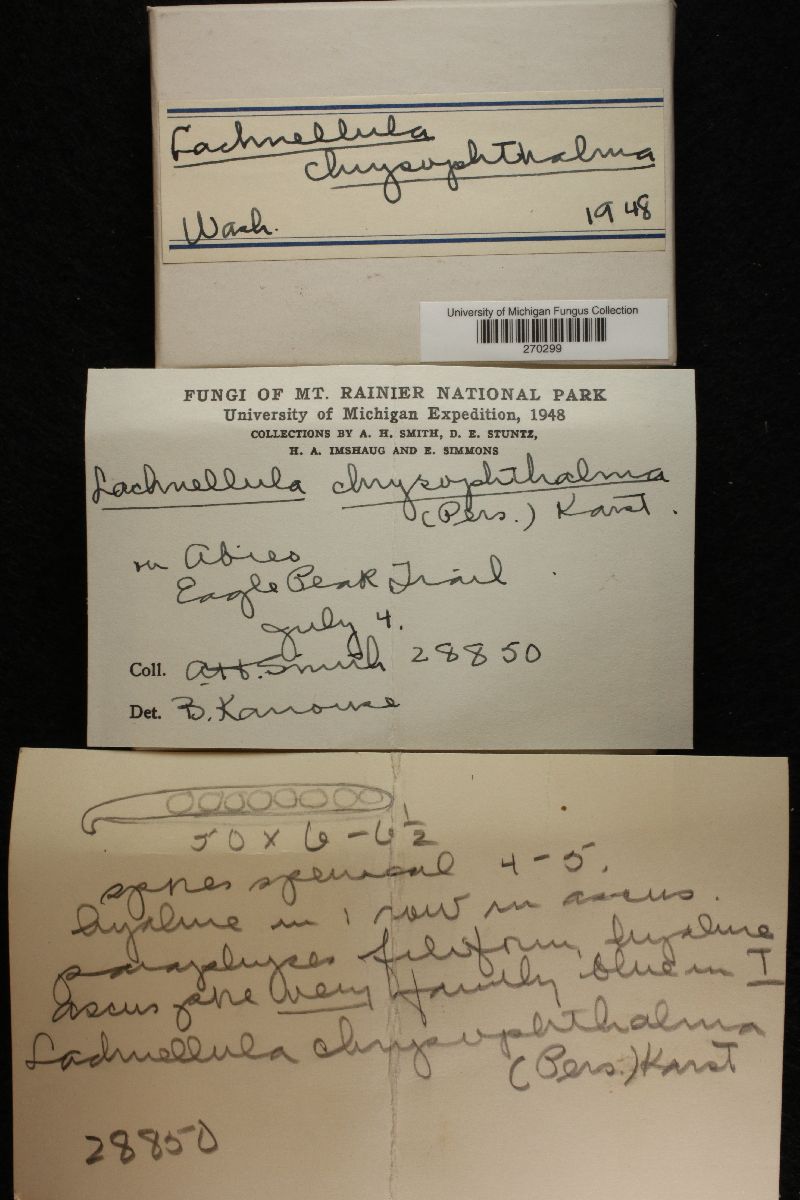 Lachnellula
chrysophthalma
Wash. 1948
University of Michigan Fungus Collection
270299
FUNGI OF MT. RAINIER NATIONAL PARK
University of Michigan Expedition, 1948
COLLECTIONS BY A. H. SMITH, D. E. STUNTZ,
H. A. IMSHAUG AND E. SIMMONS
Lachnellula chrysophthalma
(Pers.) Karst.
on Abies
Eagle Peak Trail
July 4.
Coll. A.H. Smith 28850
Det. B. Kanouse
50 x 6-6½
spores sperical 4-5.
hyaline in 1 row in ascus.
paraphyses filiform, hyaline
ascus pore very faintly blue in I
Lachnellula chrysophthalma
(Pers.) Karst
28850